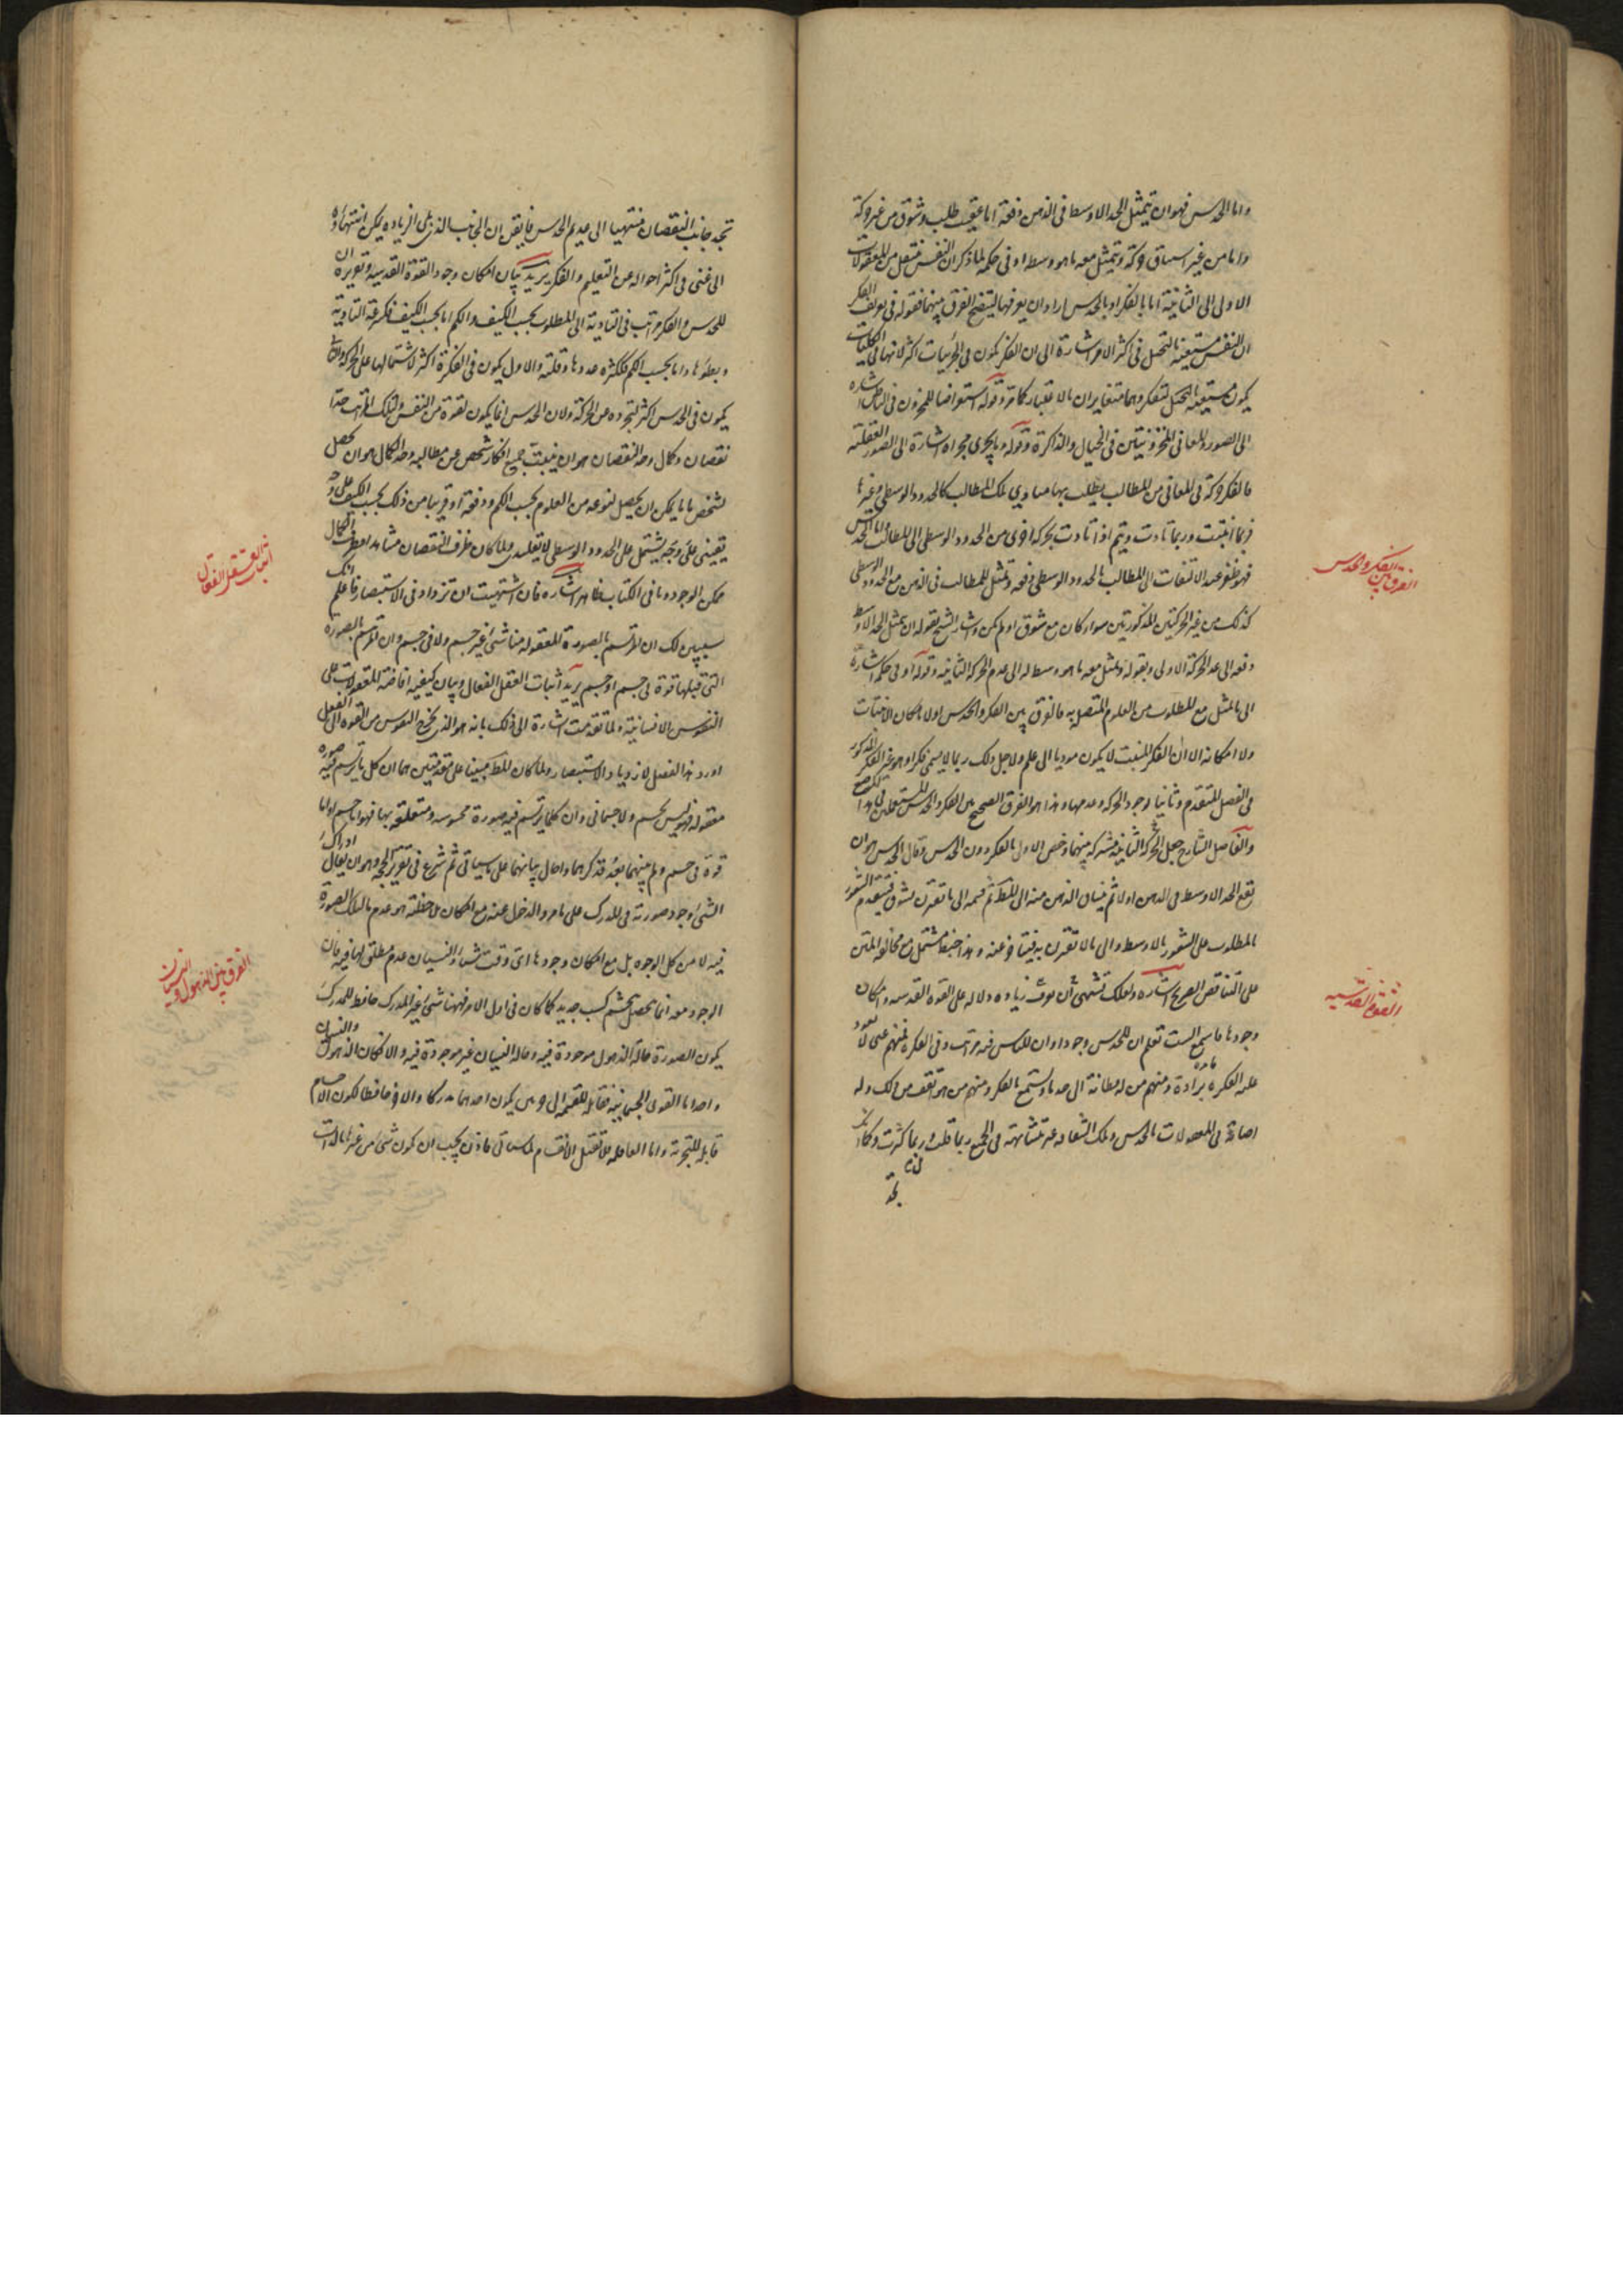 واما الحدس فهو ان يتمثل الحد الاوسط فى الذهن دفعة اما عقيب طلب وشوق من غير حركة
واما من غير اشتياق وحركة ويتمثل معه ما هو وسط له او فى حكمه لما ذكر ان النفس تنتقل من المعقولات
الاولى الى الثانية اما بالفكر او بالحدس اراد ان يعرفهما ليتضح الفرق بينهما فقوله فى تعريف الفكر
ان النفس مستعينة بالتخيل فى اكثر الامر اشارة الى ان الفكر يكون فى الجزئيات اكثر لانها فى الكليات
يكون مستعينة بالتخيل لتفكر وهما متغايران بالاعتبار كما مر وقوله استعراضا للمخزون فى الباطن اشاره
الى الصور والمعانى المخزونتين فى الخيال والذاكرة وقوله وما يجرى مجراه اشارة الى الصور العقلية
فالفكر حركة فى المعانى من المطالب يطلب بها مبادي تلك المطالب كالحدود الوسطى وغيرها
فربما انبتت وربما تادت ويتم اذا تادت بحركة اخرى من الحدود الوسطى الى المطالب واما الحدس
فهو ظفر عند الالتفات الى المطالب بالحدود الوسطى دفعه وتمثل المطالب فى الذهن مع الحدود الوسطى
كذلك من غير الحركتين المذكورتين سواء كان مع شوق او لم يكن واشار الشيخ بقوله ان يتمثل الحد الاوسط
دفعه الى عدم الحركة الاولى وبقوله ويتمثل معه ما هو وسط له الى عدم الحركة الثانيه وقوله او فى حكمه اشارة
الى ما يتمثل مع المطلوب من العلوم المتصلة به فالفرق بين الفكر والحدس اولا بامكان الانبتات
ولا امكانه الا ان الفكر المنبت لا يكون موديا الى علم ولاجل ذلك ربما لا يسمى فكرا وهو غير الفكر المذكور
فى الفصل المتقدم وثانيا بوجود الحركه وعدمها وهذا هو الفرق الصحيح بين الفكر والحدس المستعملين فى هذا الموضع
والفاضل الشارح جعل الحركة الثانية مشتركه بينهما وخص الاول بالفكر دون الحدس وقال الحدس هو ان
يقع الحد الاوسط فى الذهن اولا ثم ينساق الذهن منه الى المطلوب ثم قسمه الى ما تقترن بشوق فيتقدم الشعور
بالمطلوب على الشعور بالاوسط والى ما لا تقترن به فيتاخر عنه وهذا خبط مشتمل مع مخالفة المتن
على التناقض الصريح اشاره ولعلك تشتهى الان ان تعرف زيادة دلالة على القوة القدسيه وامكان
وجودها فاسمع الست تعلم ان للحدس وجودا وان للناس فيه مراتب وفى الفكره فمنهم غبى لا تعود
عليه الفكره برادة ومنهم من له فطانة الى حد ما ويستمتع بالفكر ومنهم من هو اثقف من ذلك وله
اصابة فى المعقولات بالحدس وتلك الثقافه غير متشابهة فى الجميع ربما قلت وربما كثرت وكما انك
تجد
الفرق بين الفكر والحدس
القوة القدسيه
تجد جانب النقصان منتهيا الى عديم الحدس فايقن ان الجانب الذى يلى الزياده يمكن انتهاؤه
الى غنى فى اكثر احواله عن التعليم والفكر يريد بيان امكان وجود القوة القدسيه وتقريره ان
للحدس والفكر مراتب فى التادية الى المطلوب بحسب الكيف والكم اما بحسب الكيف فكسرعة التادية
وبطؤها واما بحسب الكم فلكثرة عددها وقلته والاول يكون فى الفكرة اكثر لاشتمالها على الحركة والثانى
يكون فى الحدس اكثر لتجرده عن الحركة ولان الحدس انما يكون لقوة من النفس ولتلك المراتب حدا
نقصان وكمال وحد النقصان هو ان ينبت جميع افكار شخص عن مطالبه وحد الكمال هو ان يحصل
لشخص ما ما يمكن ان يحصل لنوعه من العلوم بحسب الكم ودفعة او قريبا من ذلك بحسب الكيف على وجه
يقينى على وجه يشتمل على الحدود الوسطى لا تقليدى ولما كان طرف النقصان مشاهدا فطرف الكمال
ممكن الوجود وما فى الكتاب ظاهر اشاره فان اشتهيت ان تزداد فى الاستبصار فاعلم انك
سيبين لك ان المرتسم بالصورة المعقوله منا شئ غير جسم ولا فى جسم وان المرتسم بالصورة
التى قبلها قوة فى جسم او جسم يريد اثبات العقل الفعال وبيان كيفية افاضته المعقولات على
النفوس الانسانية ولما تقدمت اشارة الى ذلك بانه هو الذى يخرج النفوس من القوه الى الفعل
اورد هذا الفصل لازدياد الاستبصار ولما كان المطلب مبينا على مقدمتين هما ان كل ما يرتسم فيه صوره
معقوله فهو ليس بجسم ولا جسمانى وان كلما يرتسم فيه صورة محسوسه ومتعلقه بها فهو اما جسم او اما
قوة فى جسم ولم يبينهما بعد فذكرهما واحال بيانهما على ما سياتى ثم شرع فى تقرير الحجه وهو ان يقال ادراك
الشئ وجود صورته فى المدرك على ما مر والذهول عنه مع امكان ملاحظته هو عدم ما لتلك الصورة
فيه لا من كل الوجوه بل مع امكان وجودها اى وقت شاء والنسيان عدم مطلق لها فيه فان
الوجود معه انما يحصل بتجشم كسب جديد كما كان فى اول الامر فههنا شئ غير المدرك حافظ للمدرك
يكون الصورة حالة الذهول موجودة فيه وحالة النسيان غير موجودة فيه والا لكان الذهول والنسيان
واحدا اما القوى الجسمانية فقابلة للقسمه الى جزئين يكون احدهما مدركا والاخر حافظا لكون الاجسام
قابلة للتجزئة واما العاقله فلا تقبل الانقسام لما سياتى فاذن يجب ان يكون شئ من غيرنا بالذات
اثبات العقل الفعال
الفرق بين الذهول والنسيان